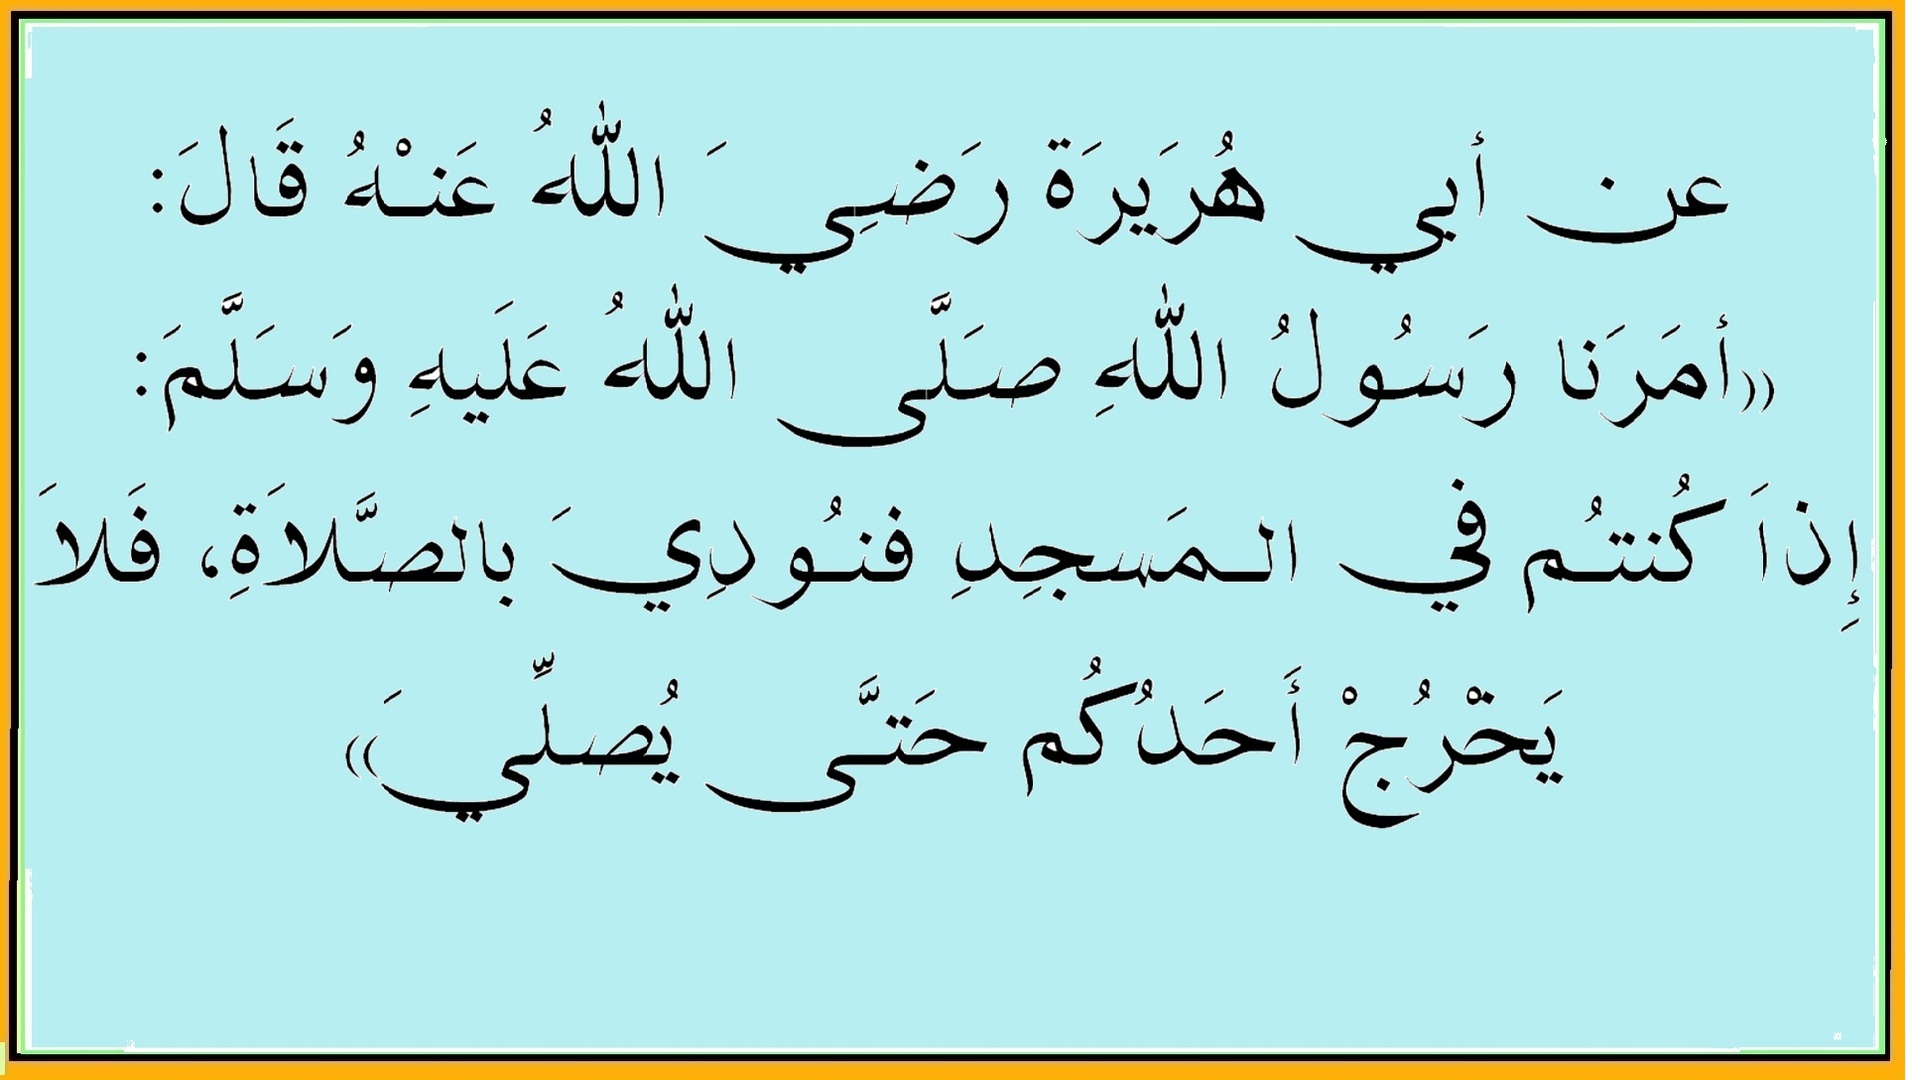 عن أبي هُرَيرَة رَضِيَ اللهُ عَنْهُ قَالَ:
((أمَرَنا رَسُولُ اللهِ صَلَّى اللهُ عَلَيهِ وَسَلَّمَ:
إِذاَ كُنتُم في المَسجِدِ فنُودِيَ بالصَّلاَةِ، فَلاَ
يَخْرُجْ أَحَدُكُم حَتَّى يُصلِّيَ))